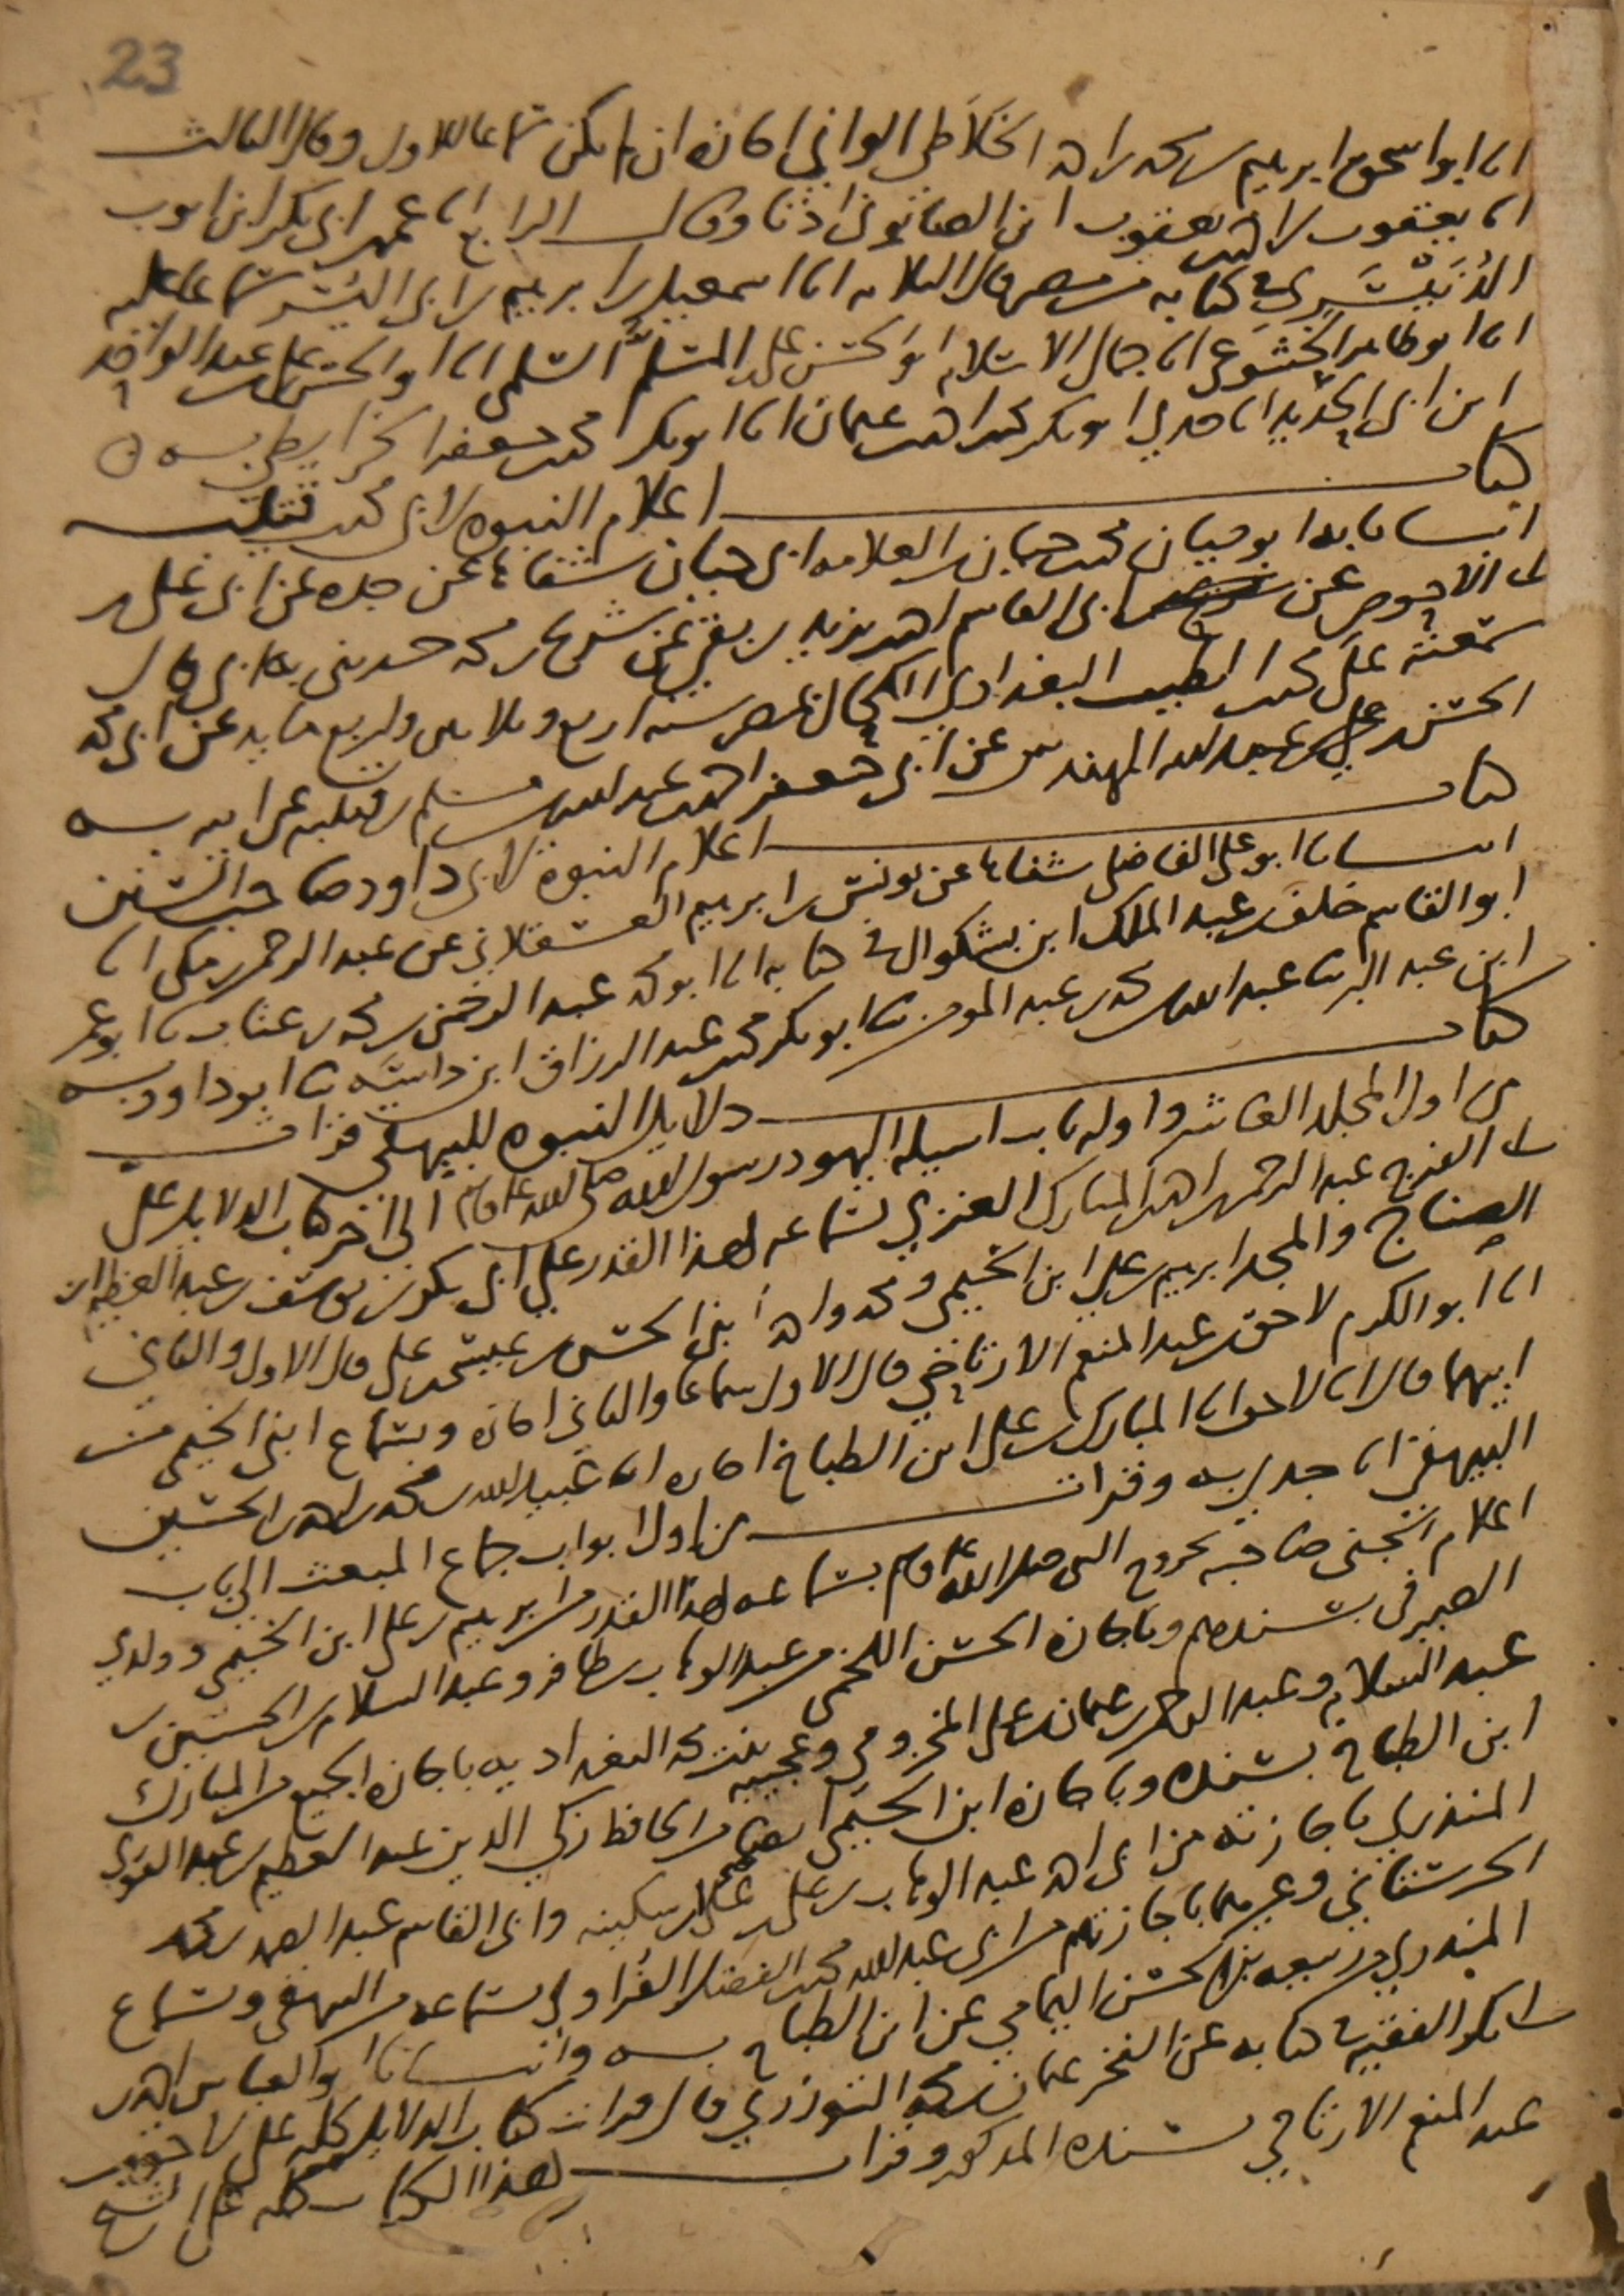 23
انا ابو اسحق ابرهيم بن محمد بن احمد الخلاطي الواني اجازه ان لم يكن سماعا للاول وقال الثالث
انا يعقوب بن احمد بن يعقوب ابن الصابوني اذنا وقال الرابع انا عمر بن ابي بكر ابن ايوب
الدُنَيْسَري في كتابه من مصر قال الثلاثه انا اسمعيل بن ابرهيم بن ابي اليُسْر سماعا عليه
انا ابو طاهر الخشوعي انا جمال الاسلام ابو الحسن علي بن المسلم السلمي انا ابو الحسن بن عبد الواحد
ابن ابي الحديد انا جدي ابو بكر محمد بن احمد بن عثمان انا ابو بكر محمد بن جعفر الخرايطي بـه
كتاب اعلام النبوه لابن قتيبه
انبانا به ابو حيان محمد بن حيان بن العلامه ابي حيان شفاها عن جده عن ابي علي بن
ابي الاحوص عن ابي القاسم احمد بن يزيد بن بقي عن شريح بن محمد حدثني به ابي قال
سمعته على محمد بن الطيب البغدادي الكحال بمصر سنه اربع وثلاثين واربع مايه عن ابي محمد
الحسن بن علي بن عبيد الله المهندس عن ابي جعفر احمد بن عبد الله بن مسلم بن قتيبه عن ابيه بـه
كتاب اعلام النبوة لابي داود صاحب السنن
انبانا ابو علي الفاضل شفاها عن يونس بن ابرهيم العسقلاني عن عبد الرحمن بن مكي انا
ابو القاسم خلف بن عبد الملك ابن بشكوال في كتابه انا ابو محمد عبد الرحمن بن محمد بن عتاب نا ابو عمر
ابن عبد البر نا عبد الله بن محمد بن عبد المومن نا ابو بكر محمد بن عبد الرزاق ابن داسَه نا ابو داود بـه
كتاب دلايل النبوه للبيهقي قرات
من اول المجلد العاشر واوله باب اسيله اليهود رسول الله صلى الله عليه وسلم الى اخر كتاب الدلايل على
ابي الفرج عبد الرحمن بن احمد بن المبارك الغزي بسماعه لهذا القدر على ابي بكر بن يوسف بن عبد العظيم ابن
الصناج والمجد ابرهيم بن علي ابن الخيمي ومحمد واحمد ابني الحسن بن عيسى بن علي قال الاول والثاني
انا ابو الكرم لاحق بن عبد المنعم الارتاحي قال الاول سماعا والثاني اجازه وبسماع ابني الخيمي من
ابيهما قالا انا لاحق انا المبارك بن علي ابن الطباخ اجازه انا عبيد الله بن محمد بن احمد بن الحسين
البيهقي انا جدي بـه وقرات من اول ابواب جماع المبعث الى باب
اعلام الجني صاحبه بخروج النبي صلى الله عليه وسلم بسماعه لهذا القدر من ابرهيم بن علي ابن الخيمي وولدي
الصيرفي بسندهم وباجازه الحسن اللخمي من عبد الوهاب بن ظافر وعبد السلام بن الحسين بن
عبد السلام وعبد الرحمن بن عثمان بن علي المخزومي وعجيبه بنت محمد البغداديه باجازه الجميع من المبارك
ابن الطباخ بسنده وباجازه ابن الخيمي ايضا من الحافظ زكي الدين عبد العظيم بن عبد القوي
المنذري باجازته من ابي احمد عبد الوهاب بن علي بن علي بن سكينه وابي القاسم عبد الصمد بن محمد
الحرستاني وغيرهما باجازتهم من ابي عبد الله محمد بن الفضل الفراوي بسماعه من البيهقي وبسماع
المنذري من ربيعه بن الحسن اليماني عن ابن الطباخ بـه وانبانا ابو العباس احمد بن
ابي بكر الفقيه في كتابه عن الفخر عثمان بن محمد التوزري قال قرات كتاب الدلايل كله على لاحق بن
عبد المنعم الارتاحي بسنده المذكور وقرات هذا الكتاب كله على الشيخ